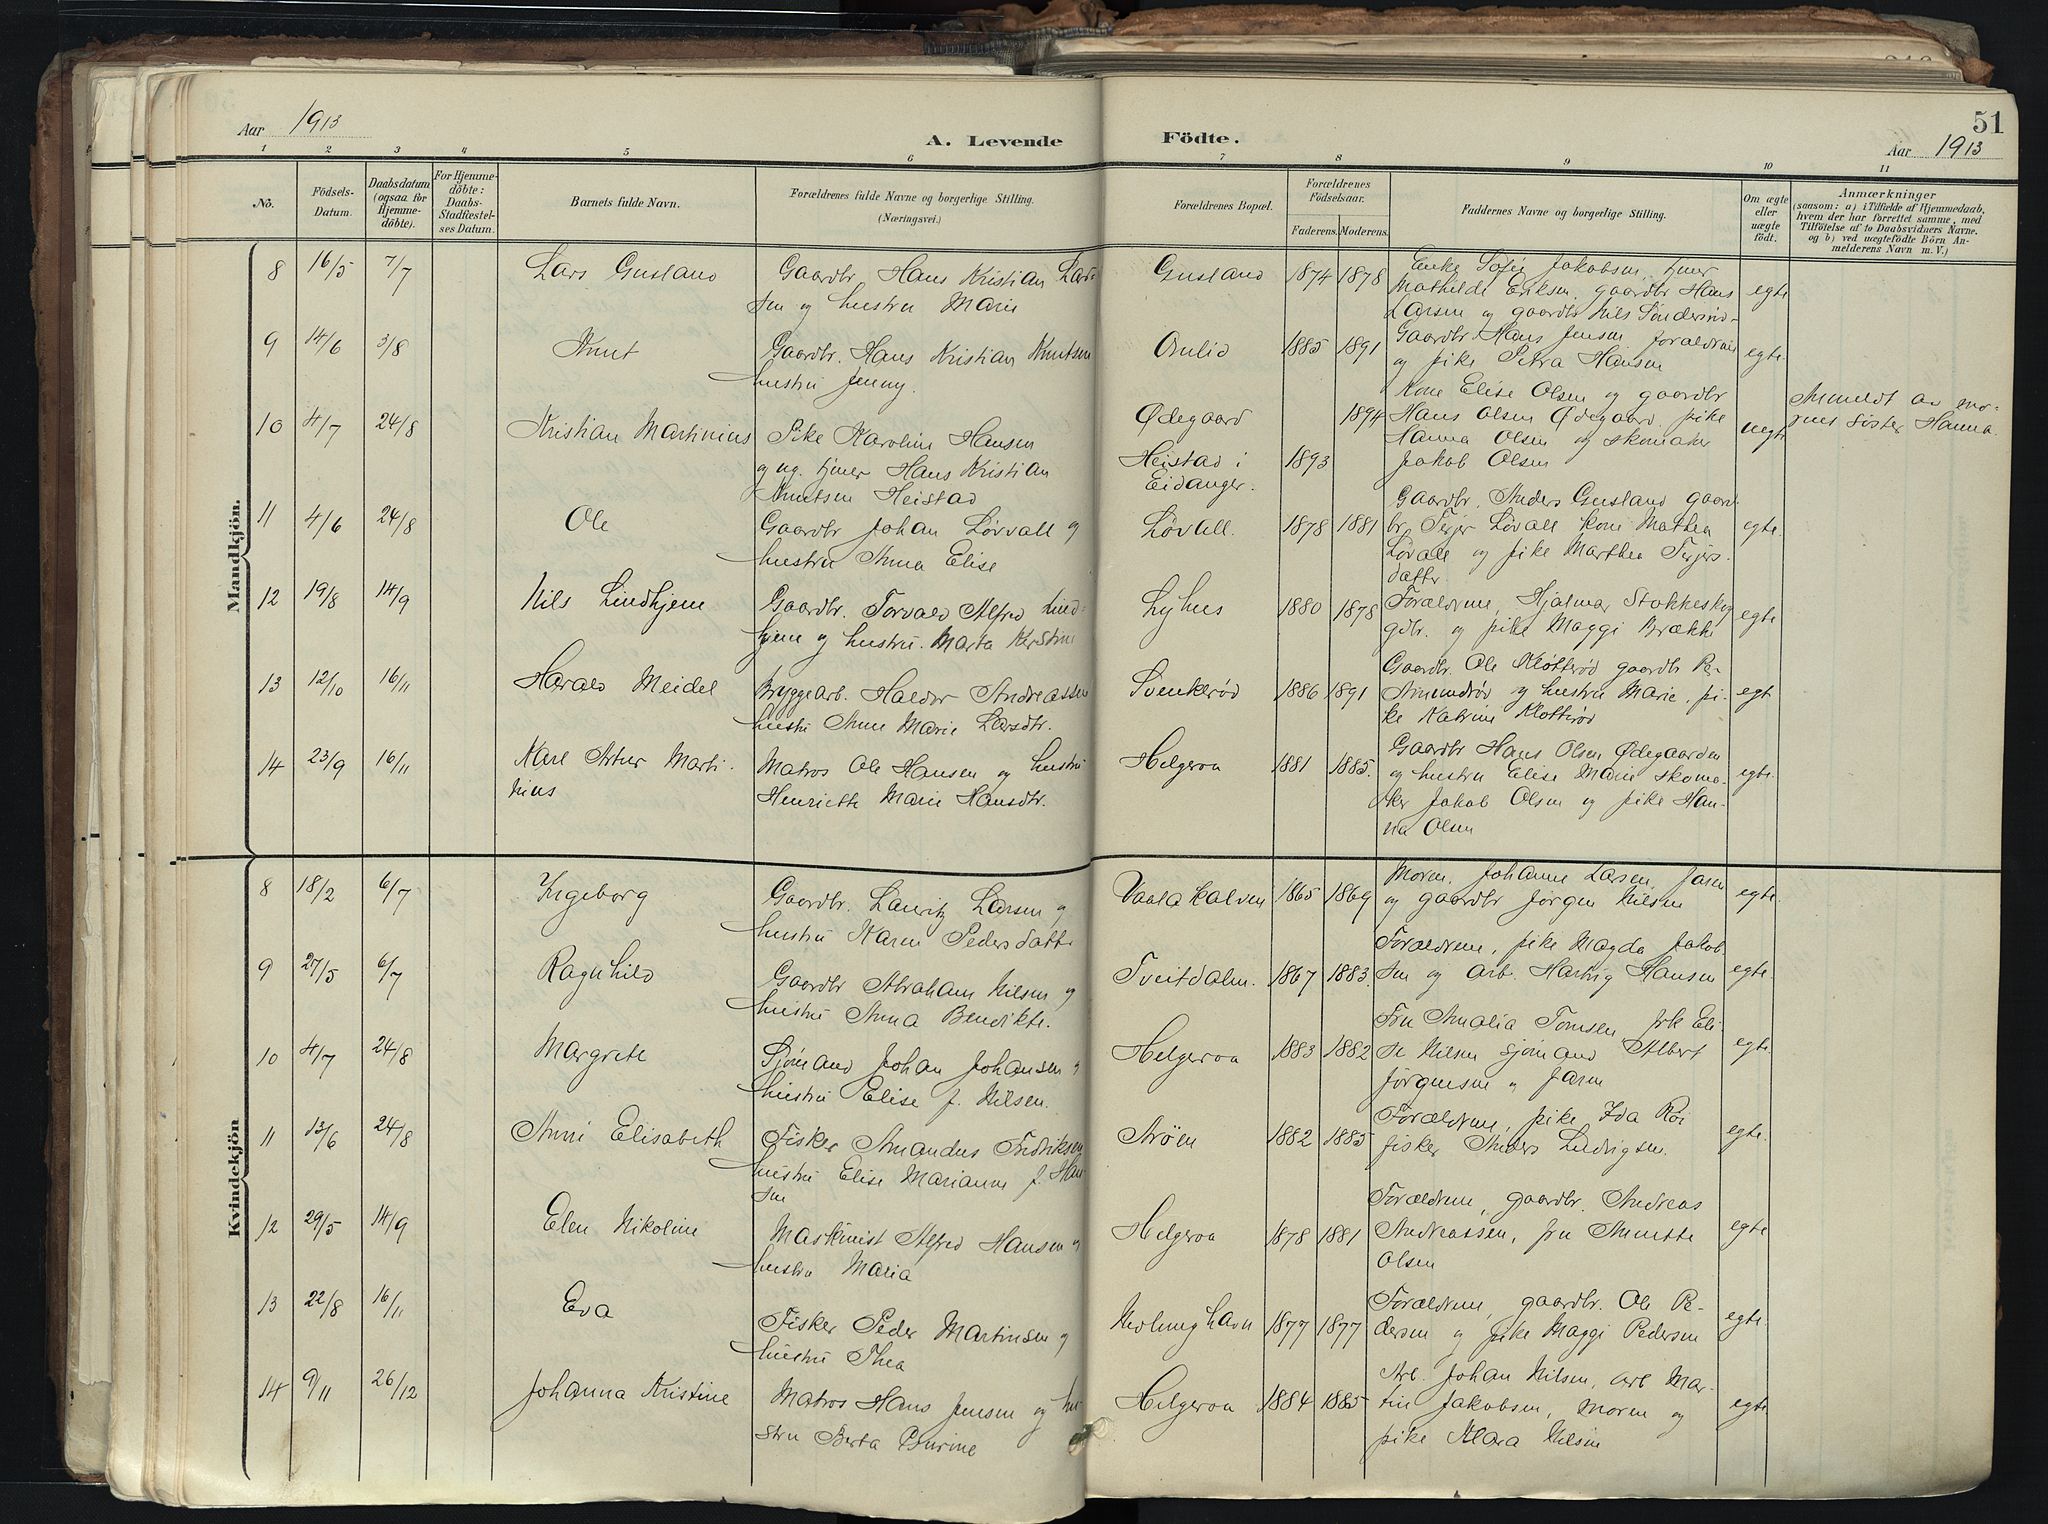 51
Aar 1913
A. Levende Födte.
Aar 1913
1 2 3 4 5 6 7 8 9 10 11
No.
Födsels-
Datum.
Daabsdatum
(ogsaa for
Hjemme-
döbte).
For Hjemme-
döbte:
Daabs-
Stadfæstel-
ses Datum.
Barnets fulde Navn.
Forældrenes fulde Navne og borgerlige Stilling.
(Næringsvei.)
Forældrenes Bopæl.
Forældrenes
Födselsaar.
Faderens. Moderens.
Faddernes Navne og borgerlige Stilling.
Om ægte
eller
uægte
födt.
Anmærkninger
(saasom: a) i Tilfælde af Hjemmedaab,
hvem der har forrettet samme, med
Tilföielse af to Daabsvidners Navne.
og b) ved uægtefödte Börn An-
melderens Navn m. V.)
Mandkjön.
8 16/5 7/7 Lars Gusland
Gaardbr. Hans Kristian Lar-
sen og hustru Marie
Gusland 1874 1878
Enke Sofie Jakobsen, tjener
Mathilde Eriksen, gaardbr Hans
Larsen og gaardbr Nils Sønders
egte
9 14/6 3/8 Knut
Gaardbr. Hans Kristian Knutsen
hustru Jenny.
Omlid 1885 1891
Gaardbr. Hans Jensen, forældrene
og pike Petra Hansen
egte.
10 4/7 24/8 Kristian Martinius
Pike Karoline Hansen
og ug. tjener Hans Kristian
Knutsen Heistad
Ødegaard 1894
Heistad i 1893
Eidanger.
Kone Elise Olsen og gaardbr
Hans Olsen Ødegaard. pike
Hanna Olsen og skomaker
Jakob Olsen
uegte
Anmeldt av mo-
rens søster Hanna.
11 4/6 24/8 Ole
Gaardbr Johan Løvall og
hustru Anna Elise
Løvall. 1878 1881
Gaardbr. Anders Gusland gaard-
br. Terjer Løvall kone Mathea
Løvall og pike Marthea Terjers-
datter
egte.
12 19/8 14/9 Nils Lindhjem
Gaardbr. Torvald Alfred Lind-
hjem og hustru. Marta Kirstine
Lyhus 1880 1878
Forældrene, Hjalmar Stokkeskog
gdbr. og pike Maggi Brække
egte
13 12/10 16/11 Harald Meidel
Bryggearb. Haldor Andreassen
hustru Anne Marie Larsdtr.
Svenkerød 1886 1891
Gaardbr. Ole Kløtterød gaardbr P.
Amundrød og hustru Marie, pi-
ke Katrine Kløtterød
egte
14 23/9 16/11 Karl Artur Marti-
nius
Matros Ole Hansen og hustru
Henriette Marie Hansdtr.
Helgeroa 1881 1885.
Gaardbr Hans Olsen Ødegaarden
og hustru Elise Marie skoma-
ker Jakob Olsen og pike Han-
na Olsen
egte.
Kvindekjön
8 18/2 6/7 Ingeborg
Gaardbr. Lauritz Larsen og
hustru Karen Pedersdatter
Vaalakalven 1865 1869
Moren, Johanne Larsen, faren
og gaardbr Jørgen Nilsen
egte.
9 27/5 6/7 Ragnhild
Gaardbr Abraham Nilsen og
hustru Anna Bendikte.
Tveitdalen. 1867 1883.
Forældrene, pike Magda Jakob-
sen og arb. Hartvig Hansen
egte.
10 4/7 24/8 Margrete
Sjømand Johan Johansen og
hustru Elise f. Nilsen.
Helgeroa 1883 1882
Fru Amalia Tomsen, frk Eli-
se Nilsen sjømand Albert
Jørgensen og faren
egte.
11 13/6 24/8 Anni Elisabeth
Fisker Amandus Fredriksen
hustru Elise Marianne f. Han-
sen
Strøm 1882 1885
Forældrene, pike Ida Roi
fisker Anders Ludvigsen.
egte.
12 29/5 14/9 Elen Nikoline
Maskinist Alfred Hansen og
hustru Maria
Helgeroa 1878 1881
Forældrene, gaardbr. Andreas
Andreassen, fru Annette
Olsen
egte
13 22/8 16/11 Eva
Fisker Peder Martinsen og
hustru Thea
Nevlunghavn 1877 1877
Forældrene, gaardbr. Ole Pe-
dersen og pike Maggi Pedersen
egte.
14 9/11 26/12 Johanna Kristine
Matros Hans Jensen og hu-
stru Berta Burine
Helgeroa 1884 1885
Arb. Johan Nilsen, arb Mar-
tin Jakobsen, moren og
pike Klara Nilsen
egte.